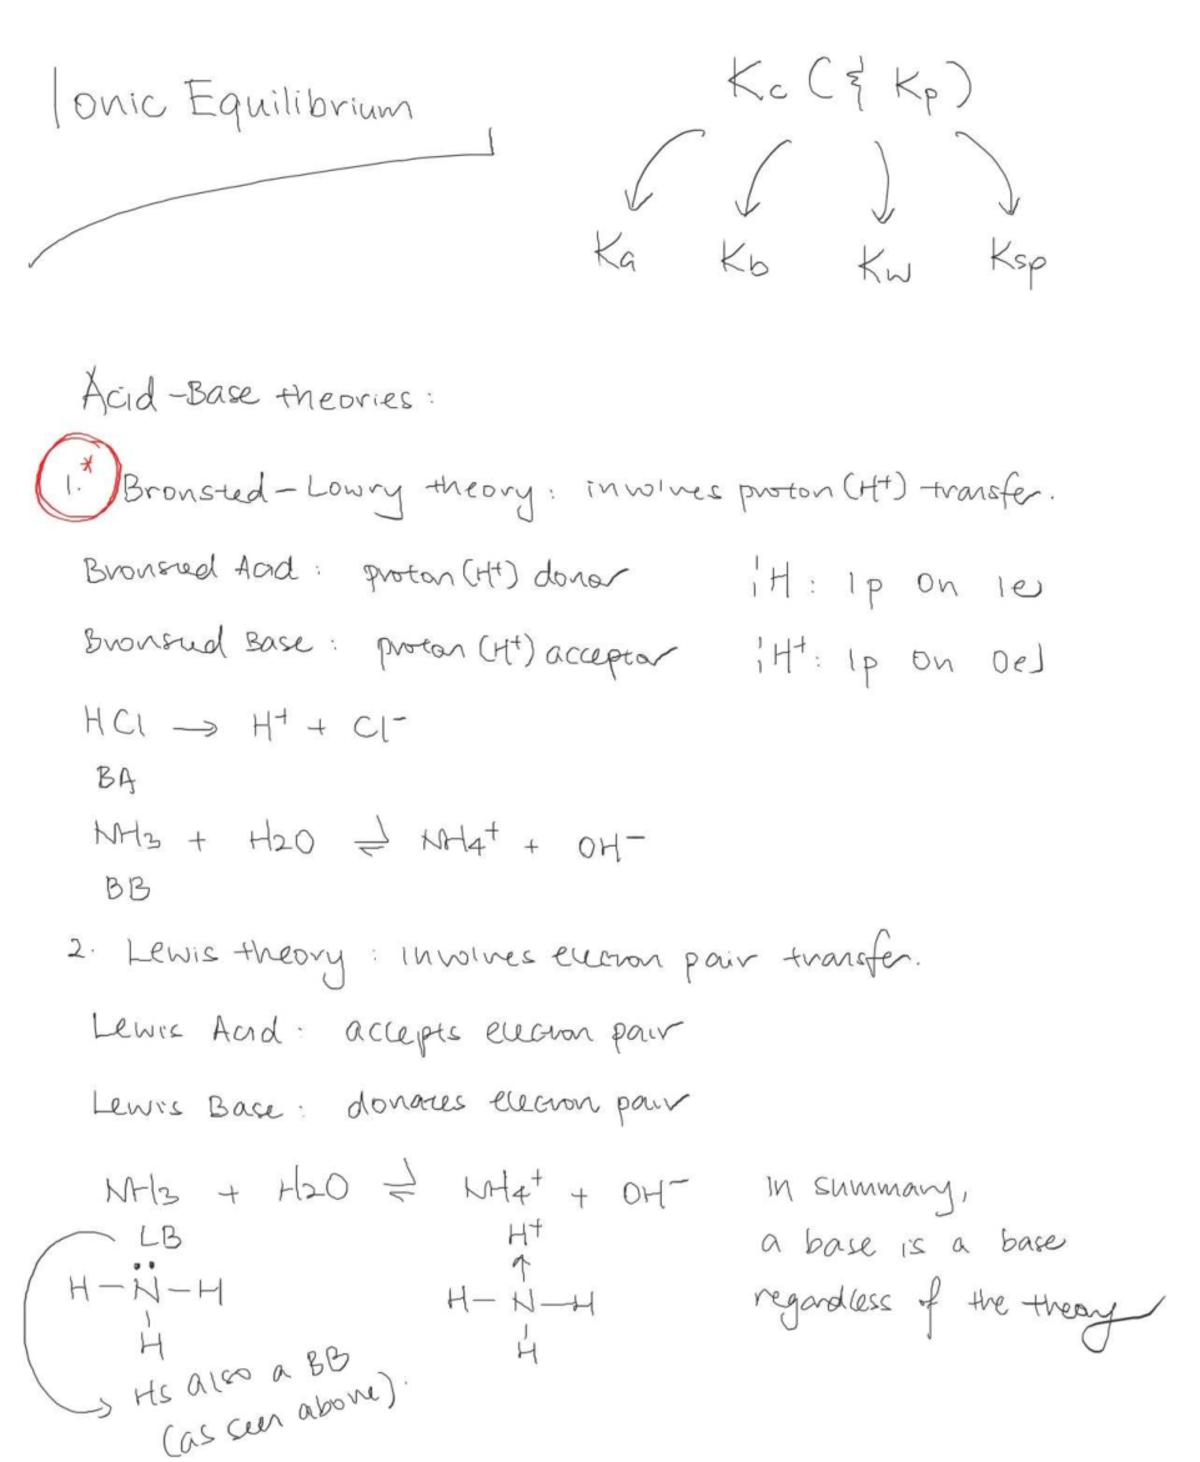 Ionic Equilibrium
Kc (& Kp)
Ka Kb Kw Ksp
Acid-Base theories:
1.* Bronsted-Lowry theory: involves proton (H+) transfer.
Bronsted Acid: proton (H+) donor
¦H: 1p 0n 1e
Bronsted Base: proton (H+) acceptor
¦H+: 1p 0n 0e
HCl → H+ + Cl-
BA
NH3 + H2O ⇌ NH4+ + OH-
BB
2. Lewis theory: involves electron pair transfer.
Lewis Acid: accepts electron pair
Lewis Base: donates electron pair
NH3 + H2O ⇌ NH4+ + OH-
LB
H-N-H
H
Its also a BB
(as seen above).
H+
↑
H-N-H
H
In summary,
a base is a base
regardless of the theory